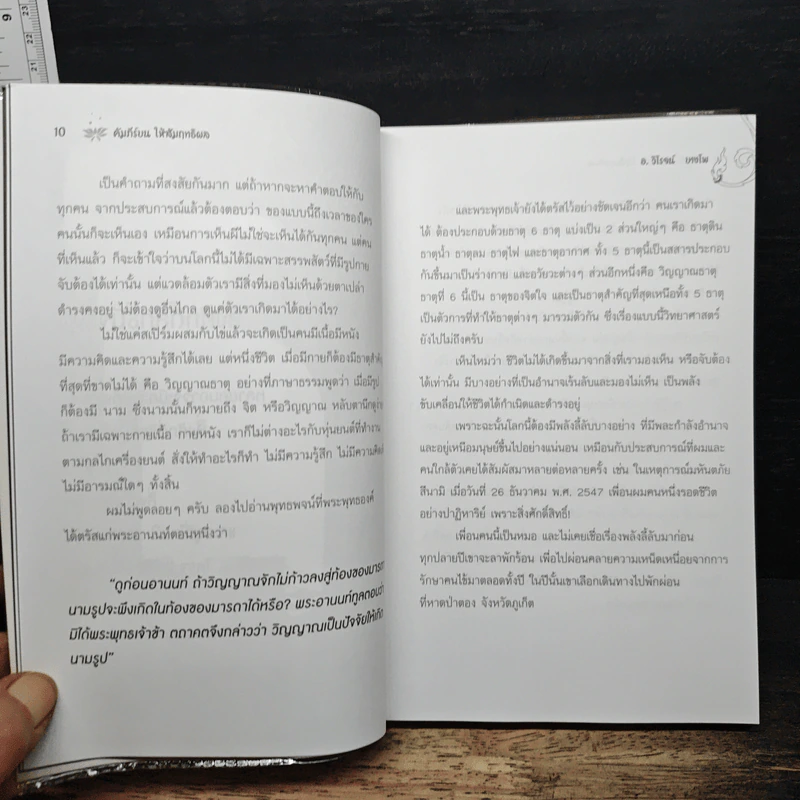 9
23
22
21
10 คัมภีร์ยน ให้สัมฤทธิผล
เป็นคำถามที่สงสัยกันมาก แต่ถ้าหากจะหาคำตอบให้กับ
ทุกคน จากประสบการณ์แล้วต้องตอบว่า ของแบบนี้ถึงเวลาของใคร
คนนั้นก็จะเห็นเอง เหมือนการเห็นผีไม่ใช่จะเห็นได้กันทุกคน แต่คน
ที่เห็นแล้ว ก็จะเข้าใจว่าบนโลกนี้ไม่ได้มีเฉพาะสรรพสัตว์ที่มีรูปกาย
จับต้องได้เท่านั้น แต่แวดล้อมตัวเรามีสิ่งที่มองไม่เห็นด้วยตาเปล่า
ดำรงคงอยู่ ไม่ต้องดูอื่นไกล ดูแค่ตัวเราเกิดมาได้อย่างไร?
ไม่ใช่แค่สเปิร์มผสมกับไข่แล้วจะเกิดเป็นคนมีเนื้อมีหนัง
มีความคิดและความรู้สึกได้เลย แต่หนึ่งชีวิต เมื่อมีกายก็ต้องมีธาตุสำคัญ
ที่สุดที่ขาดไม่ได้ คือ วิญญาณธาตุ อย่างที่ภาษาธรรมพูดว่า เมื่อมีรูป
ก็ต้องมี นาม ซึ่งนามนั้นก็หมายถึง จิต หรือวิญญาณ หลับตานึกดูว่า
ถ้าเรามีเฉพาะกายเนื้อ กายหนัง เราก็ไม่ต่างอะไรกับหุ่นยนต์ที่ทำงาน
ตามกลไกเครื่องยนต์ สั่งให้ทำอะไรก็ทำ ไม่มีความรู้สึก ไม่มีความคิด
ไม่มีอารมณ์ใดๆ ทั้งสิ้น
ผมไม่พูดลอยๆ ครับ ลองไปอ่านพุทธพจน์ที่พระพุทธองค์
ได้ตรัสแก่พระอานนท์ตอนหนึ่งว่า
"ดูก่อนอานนท์ ถ้าวิญญาณจักไม่ก้าวลงสู่ท้องของมารดา
นามรูปจะพึงเกิดในท้องของมารดาได้หรือ? พระอานนท์ทูลตอบว่า
มิได้พระพุทธเจ้าข้า ตถาคตจึงกล่าวว่า วิญญาณเป็นปัจจัยให้เกิด
นามรูป"
อ. วิโรจน์
และพระพุทธเจ้ายังได้ตรัสไว้อย่างชัดเจนอีกว่า คนเราเกิดมา
ได้ ต้องประกอบด้วยธาตุ 6 ธาตุ แบ่งเป็น 2 ส่วนใหญ่ๆ คือ ธาตุดิน
ธาตุน้ำ ธาตุลม ธาตุไฟ และธาตุอากาศ ทั้ง 5 ธาตุนี้เป็นสสารประกอบ
กันขึ้นมาเป็นร่างกาย และอวัยวะต่างๆ ส่วนอีกหนึ่งคือ วิญญาณธาตุ
ธาตุที่ 6 นี้เป็น ธาตุของจิตใจ และเป็นธาตุสำคัญที่สุดเหนือทั้ง 5 ธาตุ
เป็นตัวการที่ทำให้ธาตุต่างๆ มารวมตัวกัน ซึ่งเรื่องแบบนี้วิทยาศาสตร์
ยังไปไม่ถึงครับ
เห็นไหมว่า ชีวิตไม่ได้เกิดขึ้นมาจากสิ่งที่เรามองเห็น หรือจับต้อง
ได้เท่านั้น มีบางอย่างที่เป็นอำนาจเร้นลับและมองไม่เห็น เป็นพลัง
ขับเคลื่อนให้ชีวิตได้กำเนิดและดำรงอยู่
เพราะฉะนั้นโลกนี้ต้องมีพลังลี้ลับบางอย่าง ที่มีพละกำลังอำนาจ
และอยู่เหนือมนุษย์ขึ้นไปอย่างแน่นอน เหมือนกับประสบการณ์ที่ผมและ
คนใกล้ตัวเคยได้สัมผัสมาหลายต่อหลายครั้ง เช่น ในเหตุการณ์มหันตภัย
สึนามิ เมื่อวันที่ 26 ธันวาคม พ.ศ. 2547 เพื่อนผมคนหนึ่งรอดชีวิต
อย่างปาฏิหาริย์ เพราะสิ่งศักดิ์สิทธิ์!
เพื่อนคนนี้เป็นหมอ และไม่เคยเชื่อเรื่องพลังลี้ลับมาก่อน
ทุกปลายปีเขาจะลาพักร้อน เพื่อไปผ่อนคลายความเหน็ดเหนื่อยจากการ
รักษาคนไข้มาตลอดทั้งปี ในปีนั้นเขาเลือกเดินทางไปพักผ่อน
ที่หาดป่าตอง จังหวัดภูเก็ต